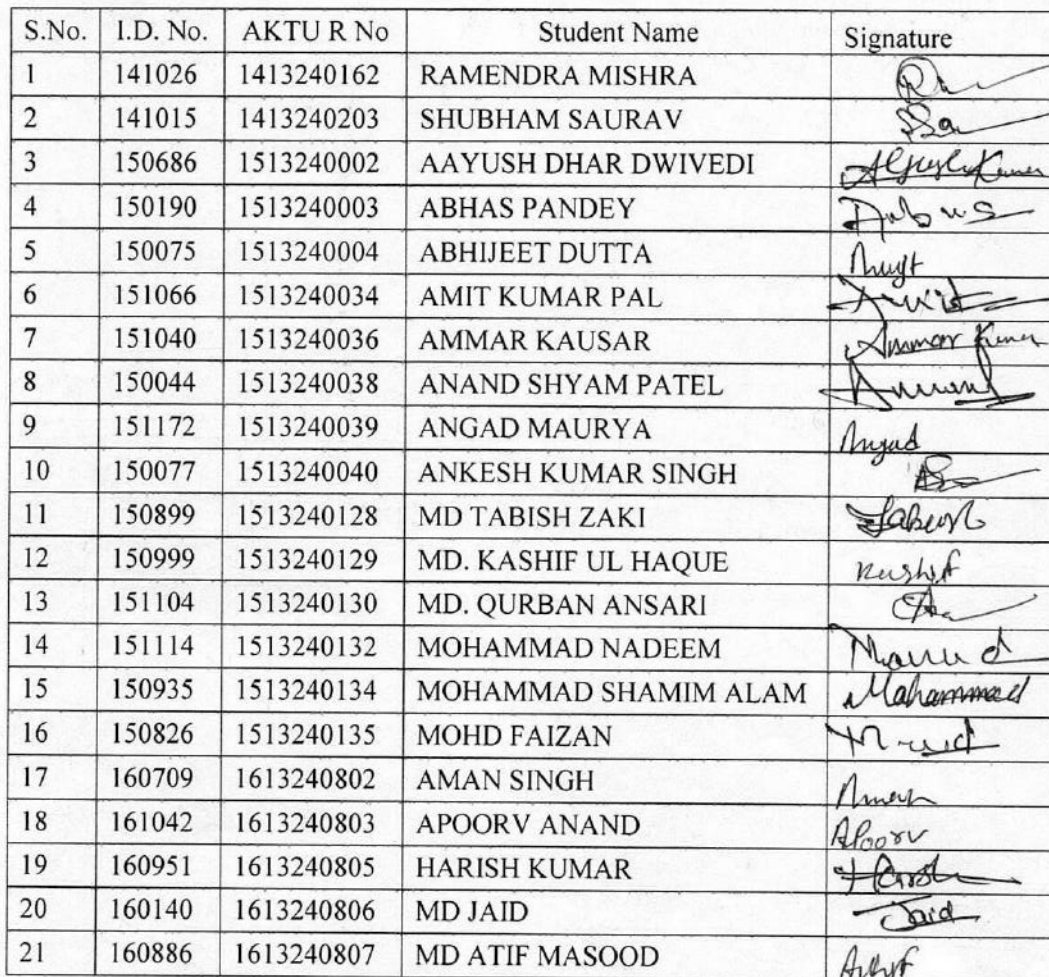 S.No. I.D. No. AKTU R No Student Name Signature
1 141026 1413240162 RAMENDRA MISHRA
2 141015 1413240203 SHUBHAM SAURAV
3 150686 1513240002 AAYUSH DHAR DWIVEDI
4 150190 1513240003 ABHAS PANDEY
5 150075 1513240004 ABHIJEET DUTTA
6 151066 1513240034 AMIT KUMAR PAL
7 151040 1513240036 AMMAR KAUSAR
8 150044 1513240038 ANAND SHYAM PATEL
9 151172 1513240039 ANGAD MAURYA Angad
10 150077 1513240040 ANKESH KUMAR SINGH
11 150899 1513240128 MD TABISH ZAKI
12 150999 1513240129 MD. KASHIF UL HAQUE Kashif
13 151104 1513240130 MD. QURBAN ANSARI
14 151114 1513240132 MOHAMMAD NADEEM
15 150935 1513240134 MOHAMMAD SHAMIM ALAM Mohammad
16 150826 1513240135 MOHD FAIZAN
17 160709 1613240802 AMAN SINGH
18 161042 1613240803 APOORV ANAND Apoorv
19 160951 1613240805 HARISH KUMAR
20 160140 1613240806 MD JAID Jaid
21 160886 1613240807 MD ATIF MASOOD